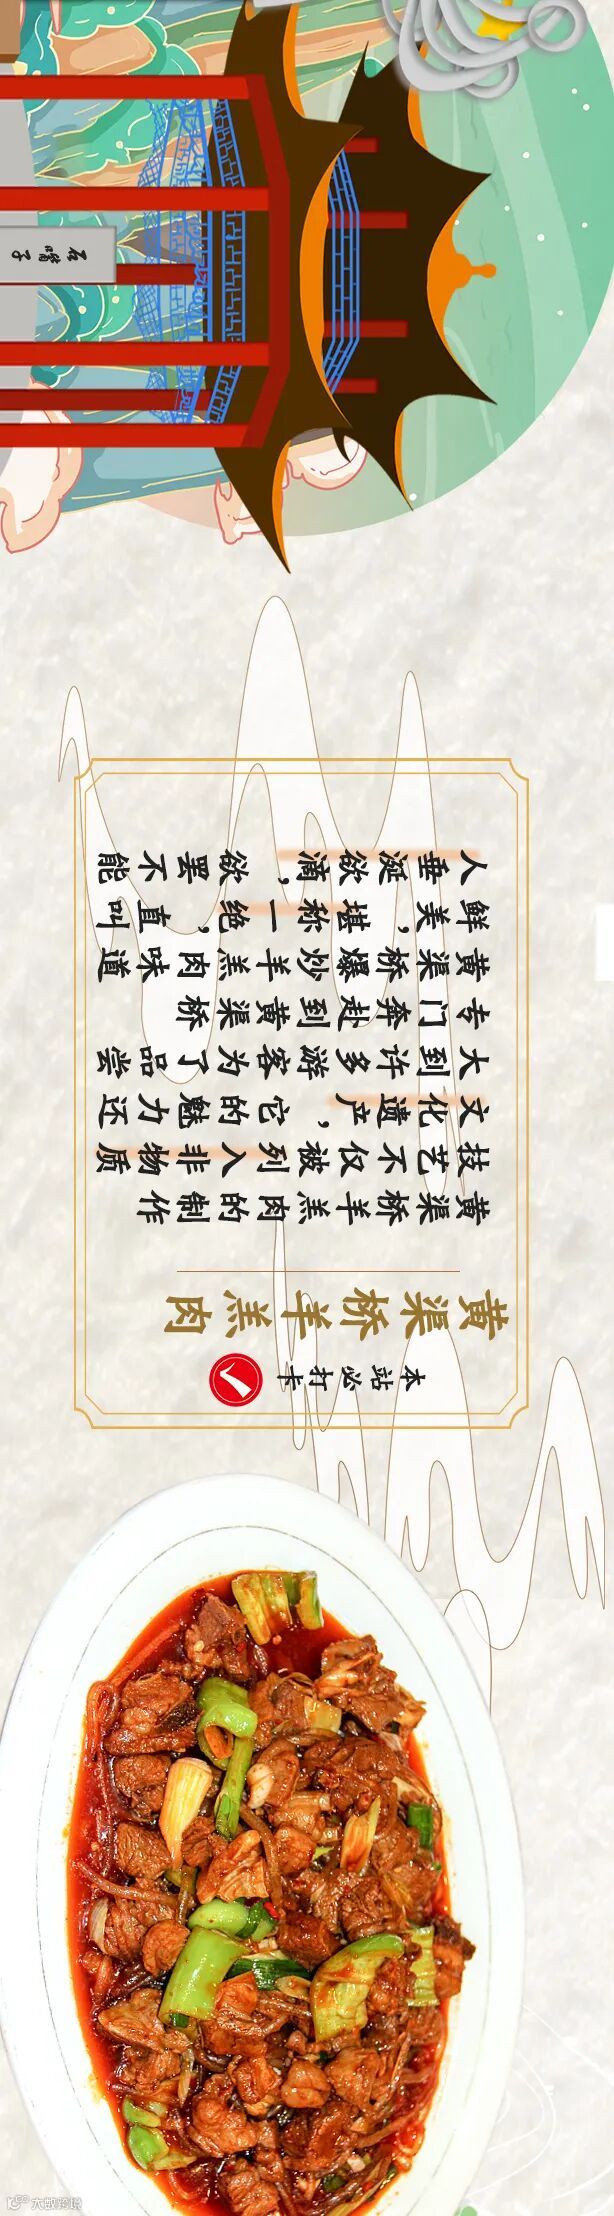 石嘴子
本站必打卡
黄渠桥羊羔肉
黄渠桥羊羔肉的制作
技艺不仅被列入非物质
文化遗产，它的魅力还
大到许多游客为了品尝
专门奔赴到黄渠桥
黄渠桥爆炒羊羔肉味道
鲜美，堪称一绝，直叫
人垂涎欲滴，欲罢不能
大数跨境